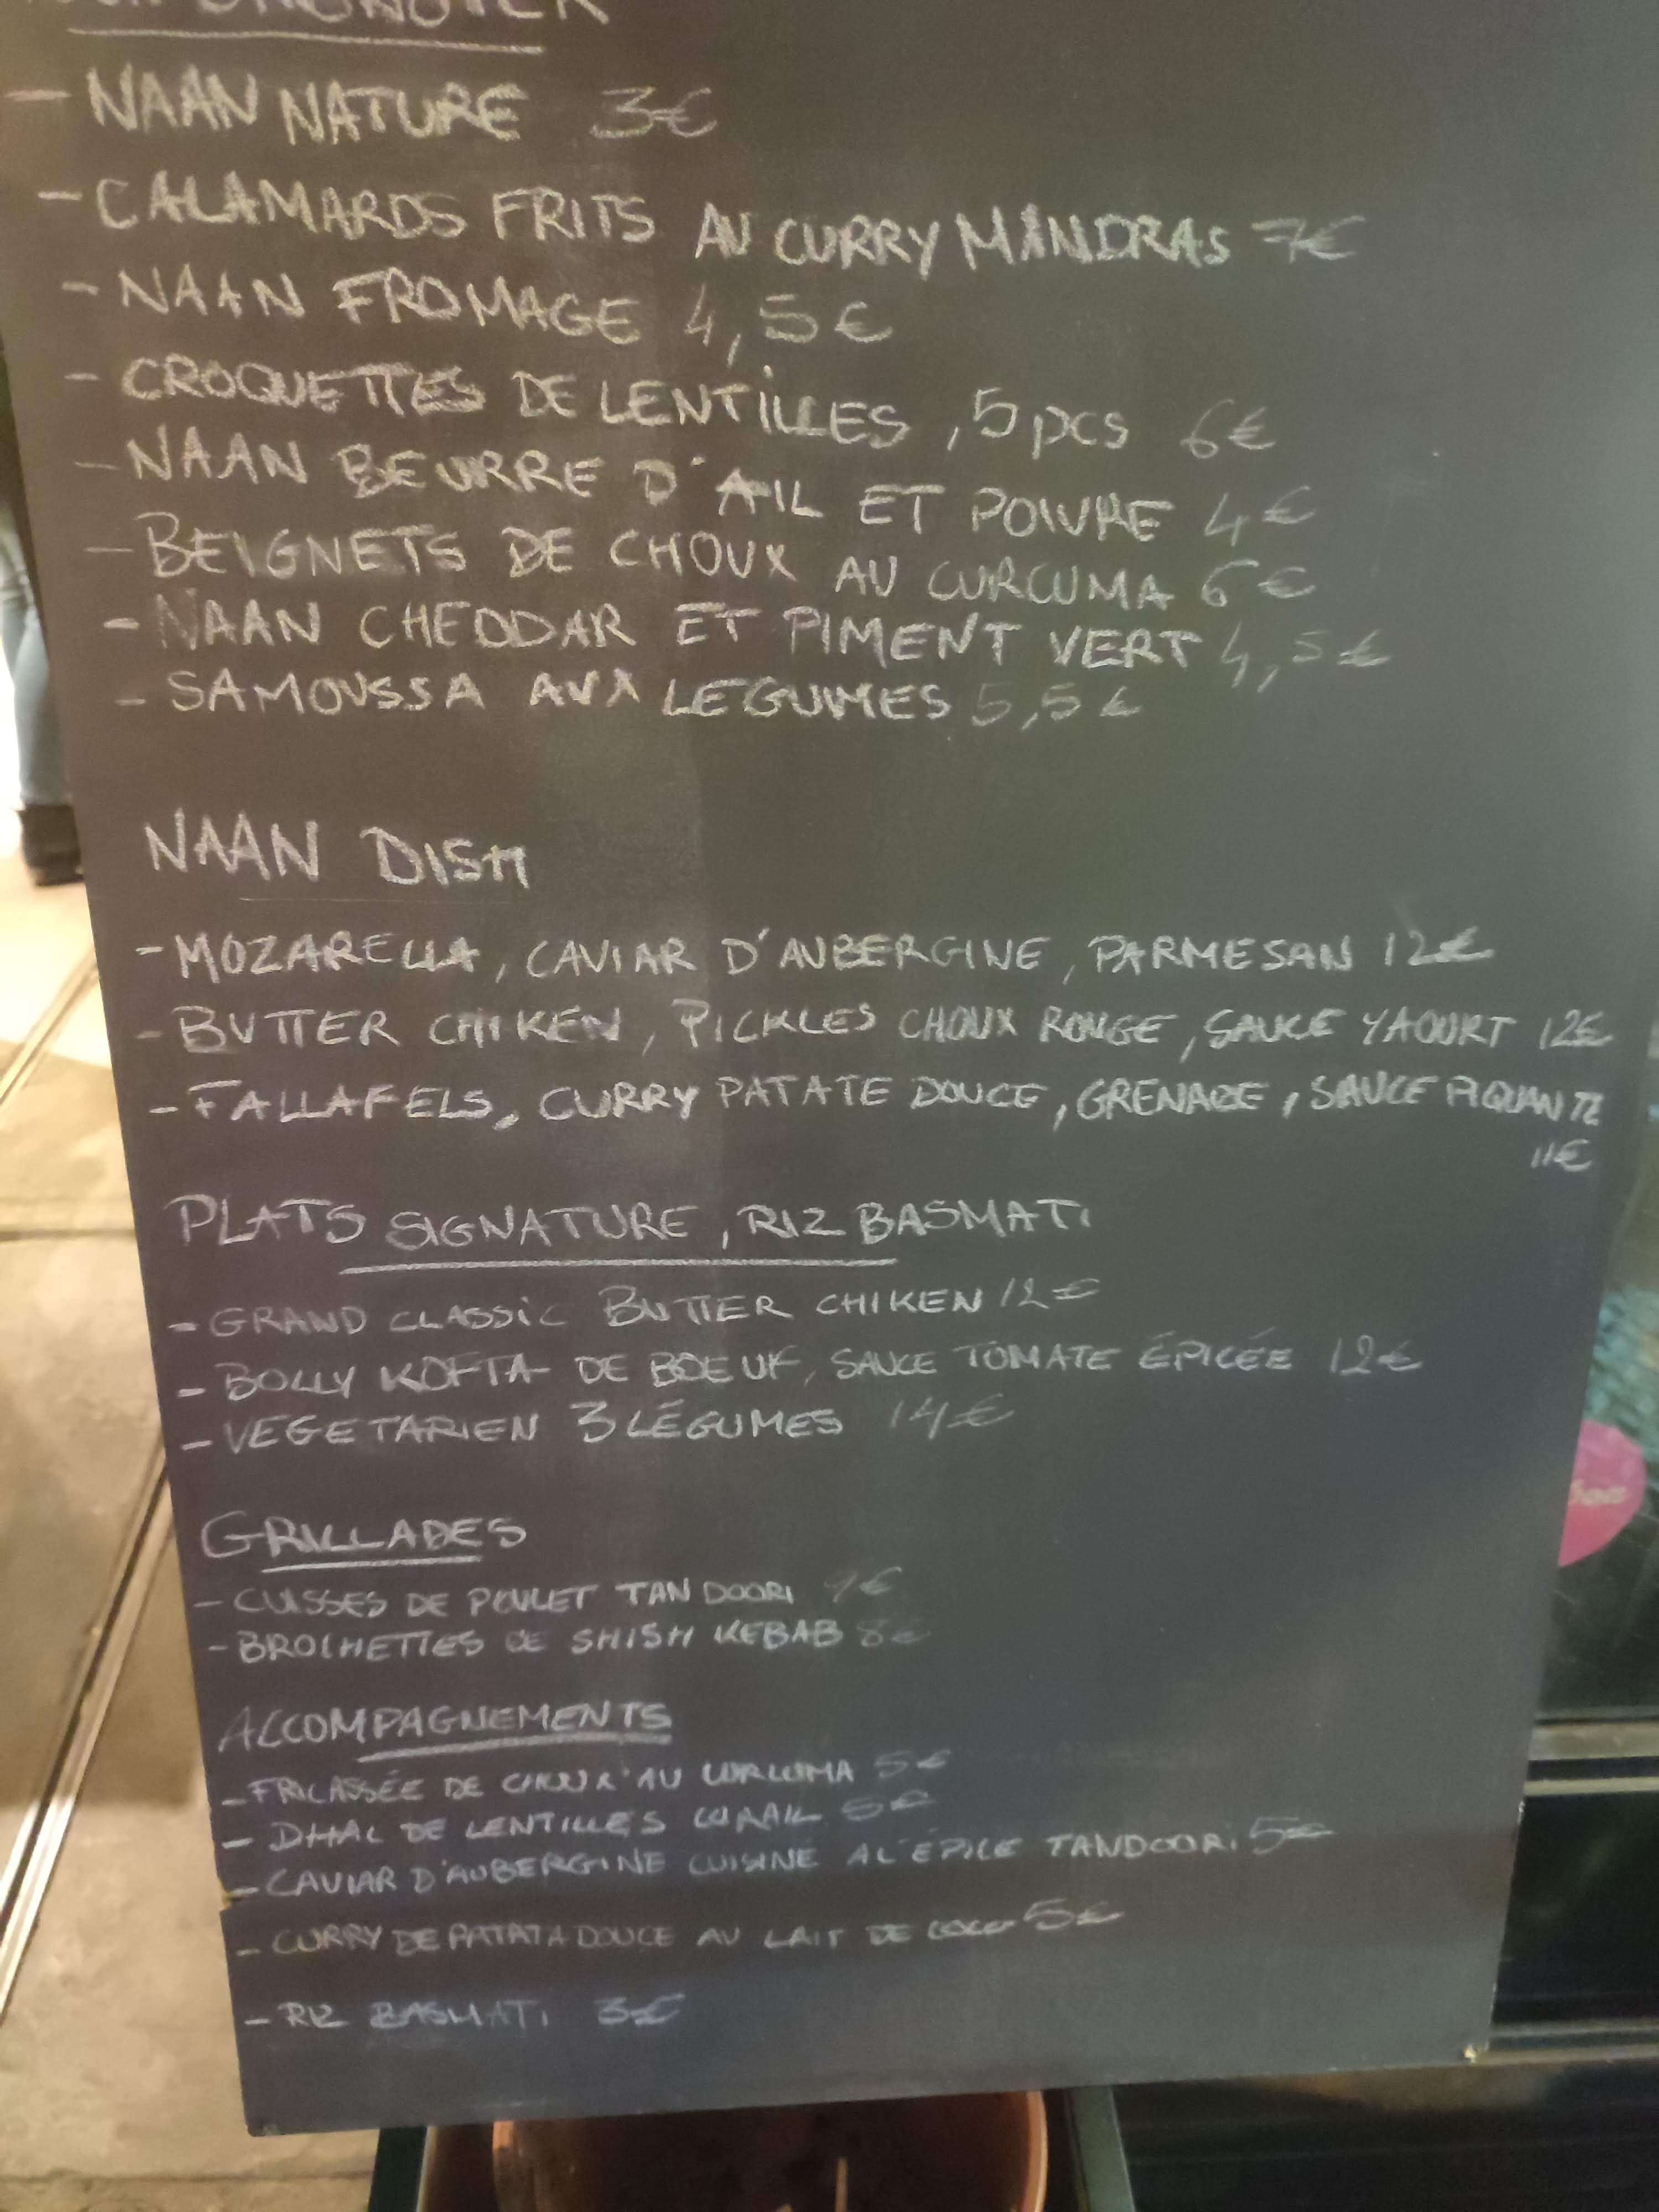 - NAAN NATURE 3€
- CALAMARDS FRITS AU CURRY MANDRAS 7€
- NAAN FROMAGE 4,5€
- CROQUETTES DE LENTILLES, 5 pcs 6€
- NAAN BEURRE D'AIL ET POIVRE 4€
- BEIGNETS DE CHOUX AU CURCUMA 6€
- NAAN CHEDDAR ET PIMENT VERT 4,5€
- SAMOUSSA AUX LEGUMES 5,5€
NAAN DISH
- MOZARELLA, CAVIAR D'AUBERGINE, PARMESAN 12€
- BUTTER CHIKEN, PICKLES CHOUX ROUGE, SAUCE YAOURT 12€
- FALLAFELS, CURRY PATATE DOUCE, GRENADE, SAUCE PIQUANTE
11€
PLATS SIGNATURE, RIZ BASMATI
- GRAND CLASSIC BUTTER CHIKEN 12€
- BOLLY KOFTA DE BOEUF, SAUCE TOMATE ÉPICÉE 12€
- VEGETARIEN 3 LÉGUMES 14€
GRILLADES
- CUISSES DE POULET TANDOORI 9€
- BROCHETTES DE SHISH KEBAB 8€
ACCOMPAGNEMENTS
- FRICASSÉE DE CHOUX AU CURCUMA 5€
- DHAL DE LENTILLES CORAIL 5€
- CAVIAR D'AUBERGINE CUISINÉ A L'ÉPICE TANDOORI 5€
- CURRY DE PATATA DOUCE AU LAIT DE COCO 5€
- RIZ BASMATI 3€